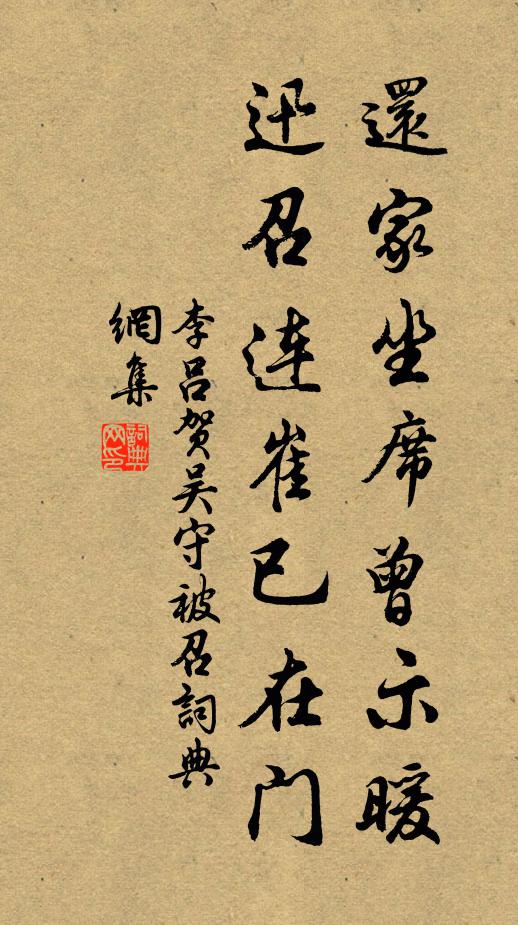 還家坐席曾示暖
迅召連崔已在門
李呂賀吴守被召詞典
網集
詞典
网印